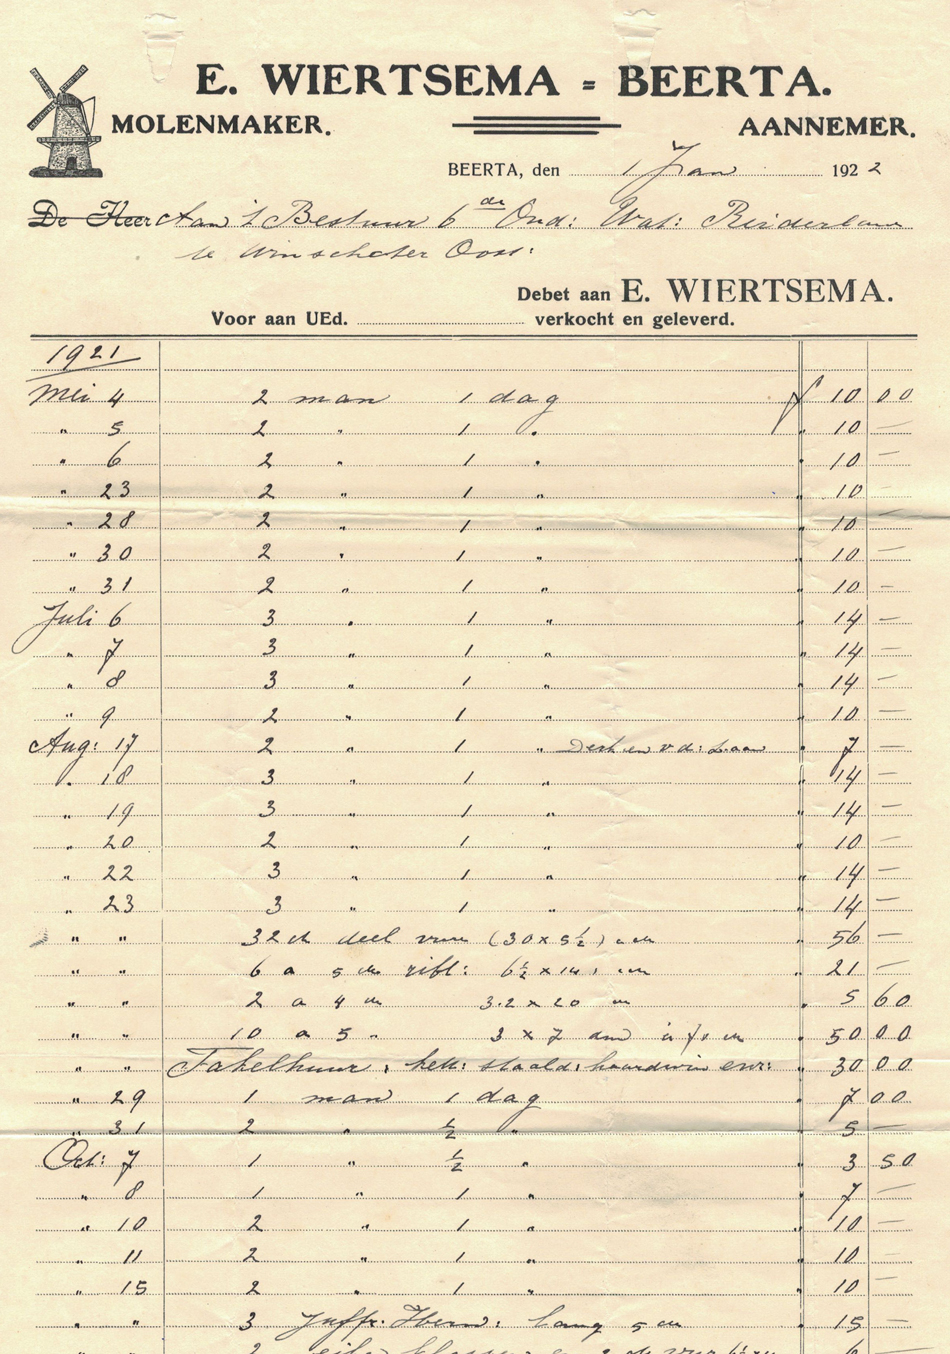 E. WIERTSEMA = BEERTA.
MOLENMAKER. AANNEMER.
BEERTA, den 1 Jan 1922
De Heer Aan 't Bestuur 6de Ond: Wat: Reiderland
te Winschoter Oost:
Debet aan E. WIERTSEMA.
Voor aan UEd. verkocht en geleverd.
1921
Mei 4 2 man 1 dag f 10 00
" 5 2 " 1 " " 10 —
" 6 2 " 1 " " 10 —
" 23 2 " 1 " " 10 —
" 28 2 " 1 " " 10 —
" 30 2 " 1 " " 10 —
" 31 2 " 1 " " 10 —
Juli 6 3 " 1 " " 14 —
" 7 3 " 1 " " 14 —
" 8 3 " 1 " " 14 —
" 9 2 " 1 " " 10 —
Aug: 17 2 " 1 " v d: Laan " 7 —
" 18 3 " 1 " " 14 —
" 19 3 " 1 " " 14 —
" 20 2 " 1 " " 10 —
" 22 3 " 1 " " 14 —
" 23 3 " 1 " " 14 —
" " 32 deel (30 x 5½) " 56 —
" " 6 a 5 ribt: 6½ x " 21 —
" " 2 a 4 3.2 x 20 " 5 60
" " 10 a 5 " 3 x 7 " 50 00
" " Takelhuur, " 30 00
" 29 1 man 1 dag " 7 00
" 31 2 " ½ " " 5 —
Oct: 7 1 " ½ " " 3 50
" 8 1 " 1 " " 7 —
" 10 2 " 1 " " 10 —
" 11 2 " 1 " " 10 —
" 15 2 " 1 " " 10 —
" " 3 Juffr. lang 5 " 15 —